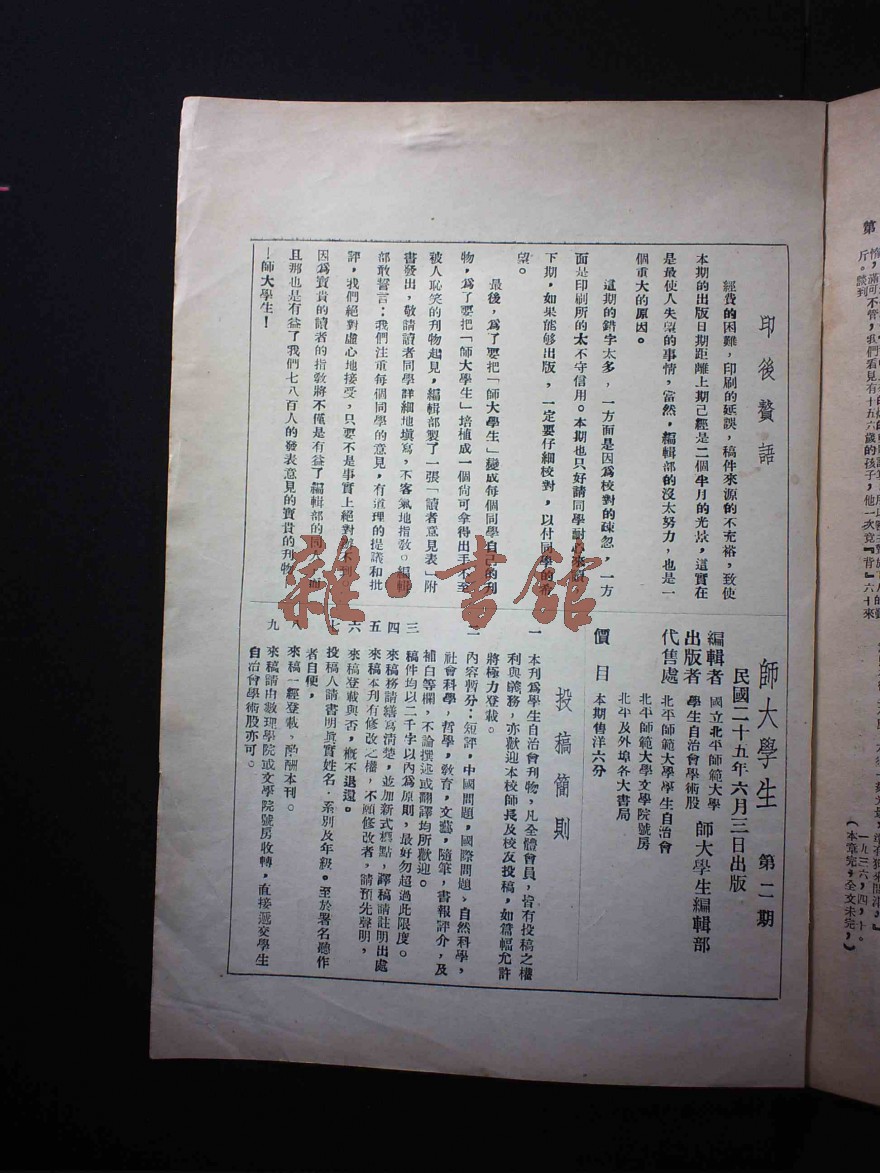 印後贅語
經費的困難，印刷的延誤，稿件來源的不充裕，致使
本期的出版日期距離上期已經是二個半月的光景，這實在
是最使人失望的事情，當然，編輯部的沒太努力，也是一
個重大的原因。
這期的錯字太多，一方面是因為校對的疎忽，一方
面是印刷所的太不守信用。本期也只好請同學耐心
下期，如果能够出版，一定要仔細校對，以付同學的希
望。
最後，為了要把「師大學生」變成每個同學自己的刊
物，為了要把「師大學生」培植成一個尙可拿得出手不至
被人恥笑的刊物起見，編輯部製了一張「讀者意見表」附
書發出，敬請讀者同學詳細地塡寫，不客氣地指敎。編輯
部敢誓言：我們注重每個同學的意見，有道理的提議和批
評，我們絕對虛心地接受，只要不是事實上絕對辦不到。
因為寶貴的讀者的指敎將不僅是有益了編輯部的同人，而
且那也是有益了我們七八百人的發表意見的寶貴的刊物
—師大學生！
師大學生 第二期
民國二十五年六月三日出版
編輯者 國立北平師範大學 師大學生編輯部
出版者 學生自治會學術股
代售處 北平師範大學學生自治會
北平師範大學文學院號房
北平及外埠各大書局
價目 本期售洋六分
投稿簡則
一 本刊為學生自治會刊物，凡全體會員，皆有投稿之權
利與義務，亦歡迎本校師長及校友投稿，如篇幅允許
將極力登載。
二 內容暫分：短評，中國問題，國際問題，自然科學，
社會科學，哲學，敎育，文藝，隨筆，書報評介，及
補白等欄，不論撰述或翻譯均所歡迎。
三 稿件均以二千字以內為原則，最好勿超過此限度。
四 來稿務請繕寫淸楚，並加新式標點，譯稿請註明出處
五 來稿本刊有修改之權，不願修改者，請預先聲明，
六 來稿登載與否，槪不退還。
七 投稿人請書明眞實姓名·系別及年級。至於署名聽作
者自便，
八 來稿一經登載，酌酬本刊。
九 來稿請由數理學院或文學院號房收轉，直接遞交學生
自治會學術股亦可。
雜·書館
第
，我們看見有十五六歲的孩子，他一次竟『背』六十來
斤。談到
一九三六，四，十。
（本章完，全文未完，）